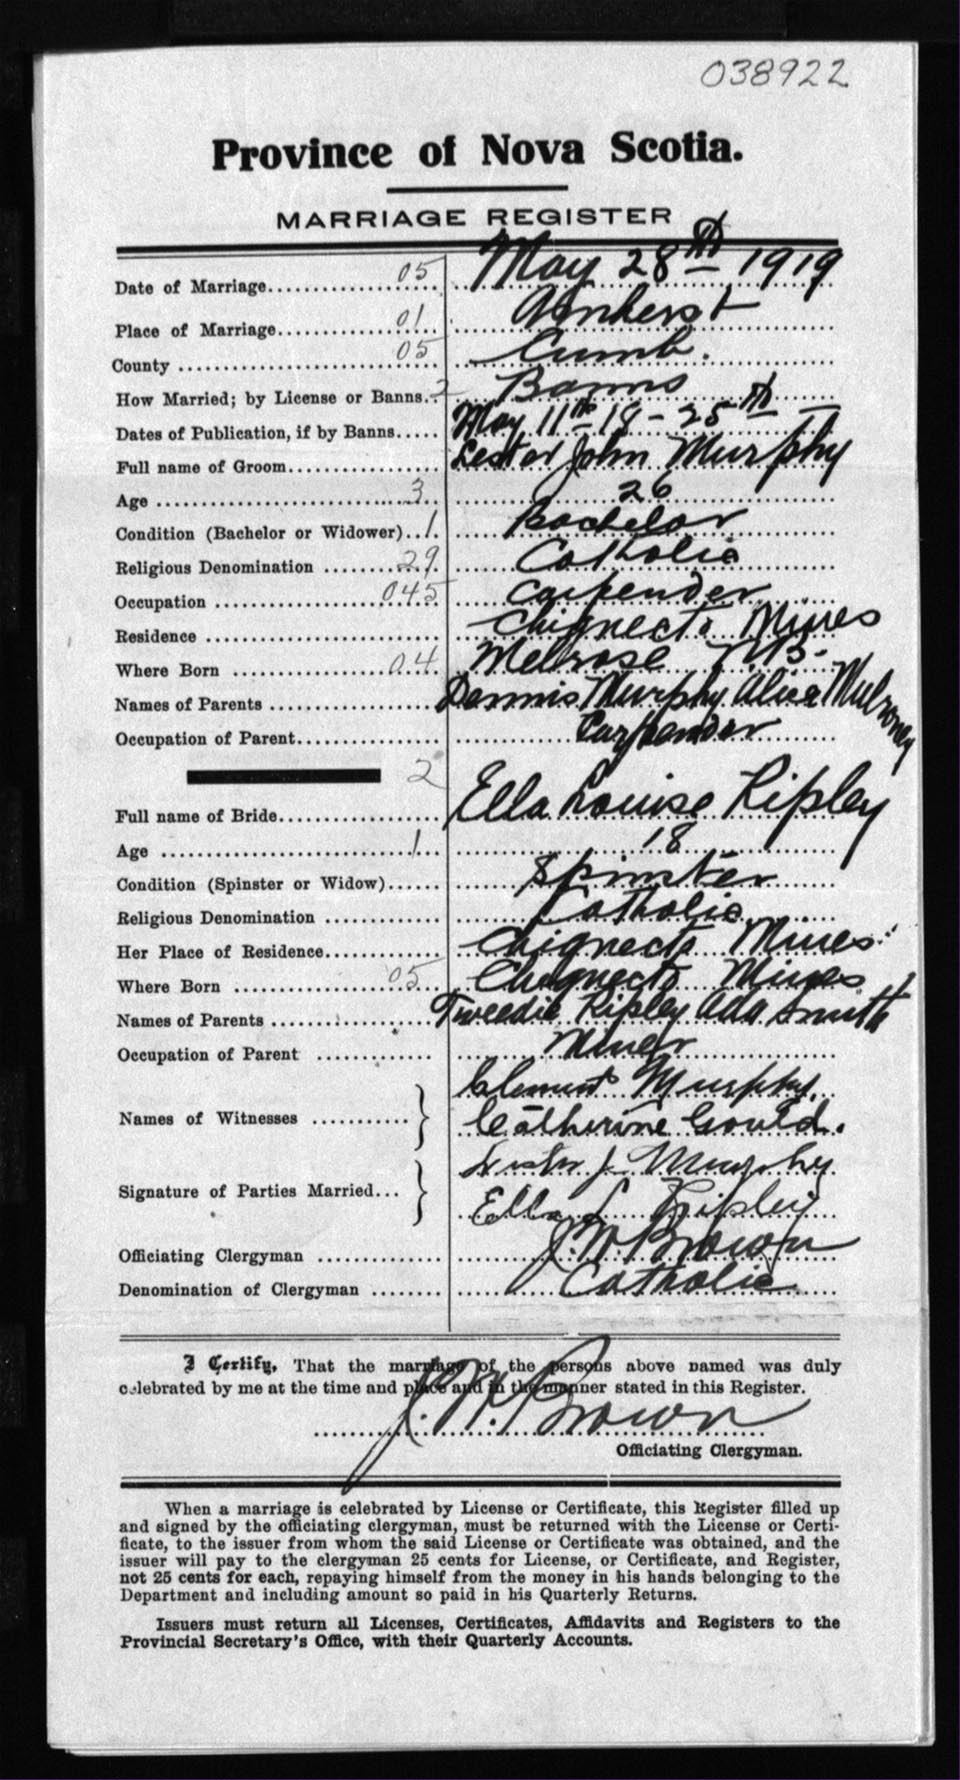 038922
Province of Nova Scotia.
MARRIAGE REGISTER
Date of Marriage 05 May 28th 1919
Place of Marriage 01 Amherst
County 05 Cumb.
How Married; by License or Banns. 2 Banns
Dates of Publication, if by Banns May 11th 18 - 25th
Full name of Groom Lester John Murphy
Age 3 26
Condition (Bachelor or Widower) 1 Bachelor
Religious Denomination 29 Catholic
Occupation 045 Carpender
Residence Chignecto Mines
Where Born 04 Melrose N.B.
Names of Parents Dennis Murphy Alice Mulroney
Occupation of Parent Carpender
2
Full name of Bride Ella Louise Ripley
Age 1 18
Condition (Spinster or Widow) Spinster
Religious Denomination Catholic
Her Place of Residence Chignecto Mines
Where Born 05 Chignecto Mines
Names of Parents Tweedie Ripley Ada Smith
Occupation of Parent Miner
Clement Murphy
Names of Witnesses
Catherine Gould.
Lester J. Murphy
Signature of Parties Married
Ella L Ripley
Officiating Clergyman J. W. Brown
Denomination of Clergyman Catholic
I Certify, That the marriage of the persons above named was duly
celebrated by me at the time and place and in the manner stated in this Register.
J. W. Brown
Officiating Clergyman.
When a marriage is celebrated by License or Certificate, this Register filled up
and signed by the officiating clergyman, must be returned with the License or Certi-
ficate, to the issuer from whom the said License or Certificate was obtained, and the
issuer will pay to the clergyman 25 cents for License, or Certificate, and Register,
not 25 cents for each, repaying himself from the money in his hands belonging to the
Department and including amount so paid in his Quarterly Returns.
Issuers must return all Licenses, Certificates, Affidavits and Registers to the
Provincial Secretary's Office, with their Quarterly Accounts.